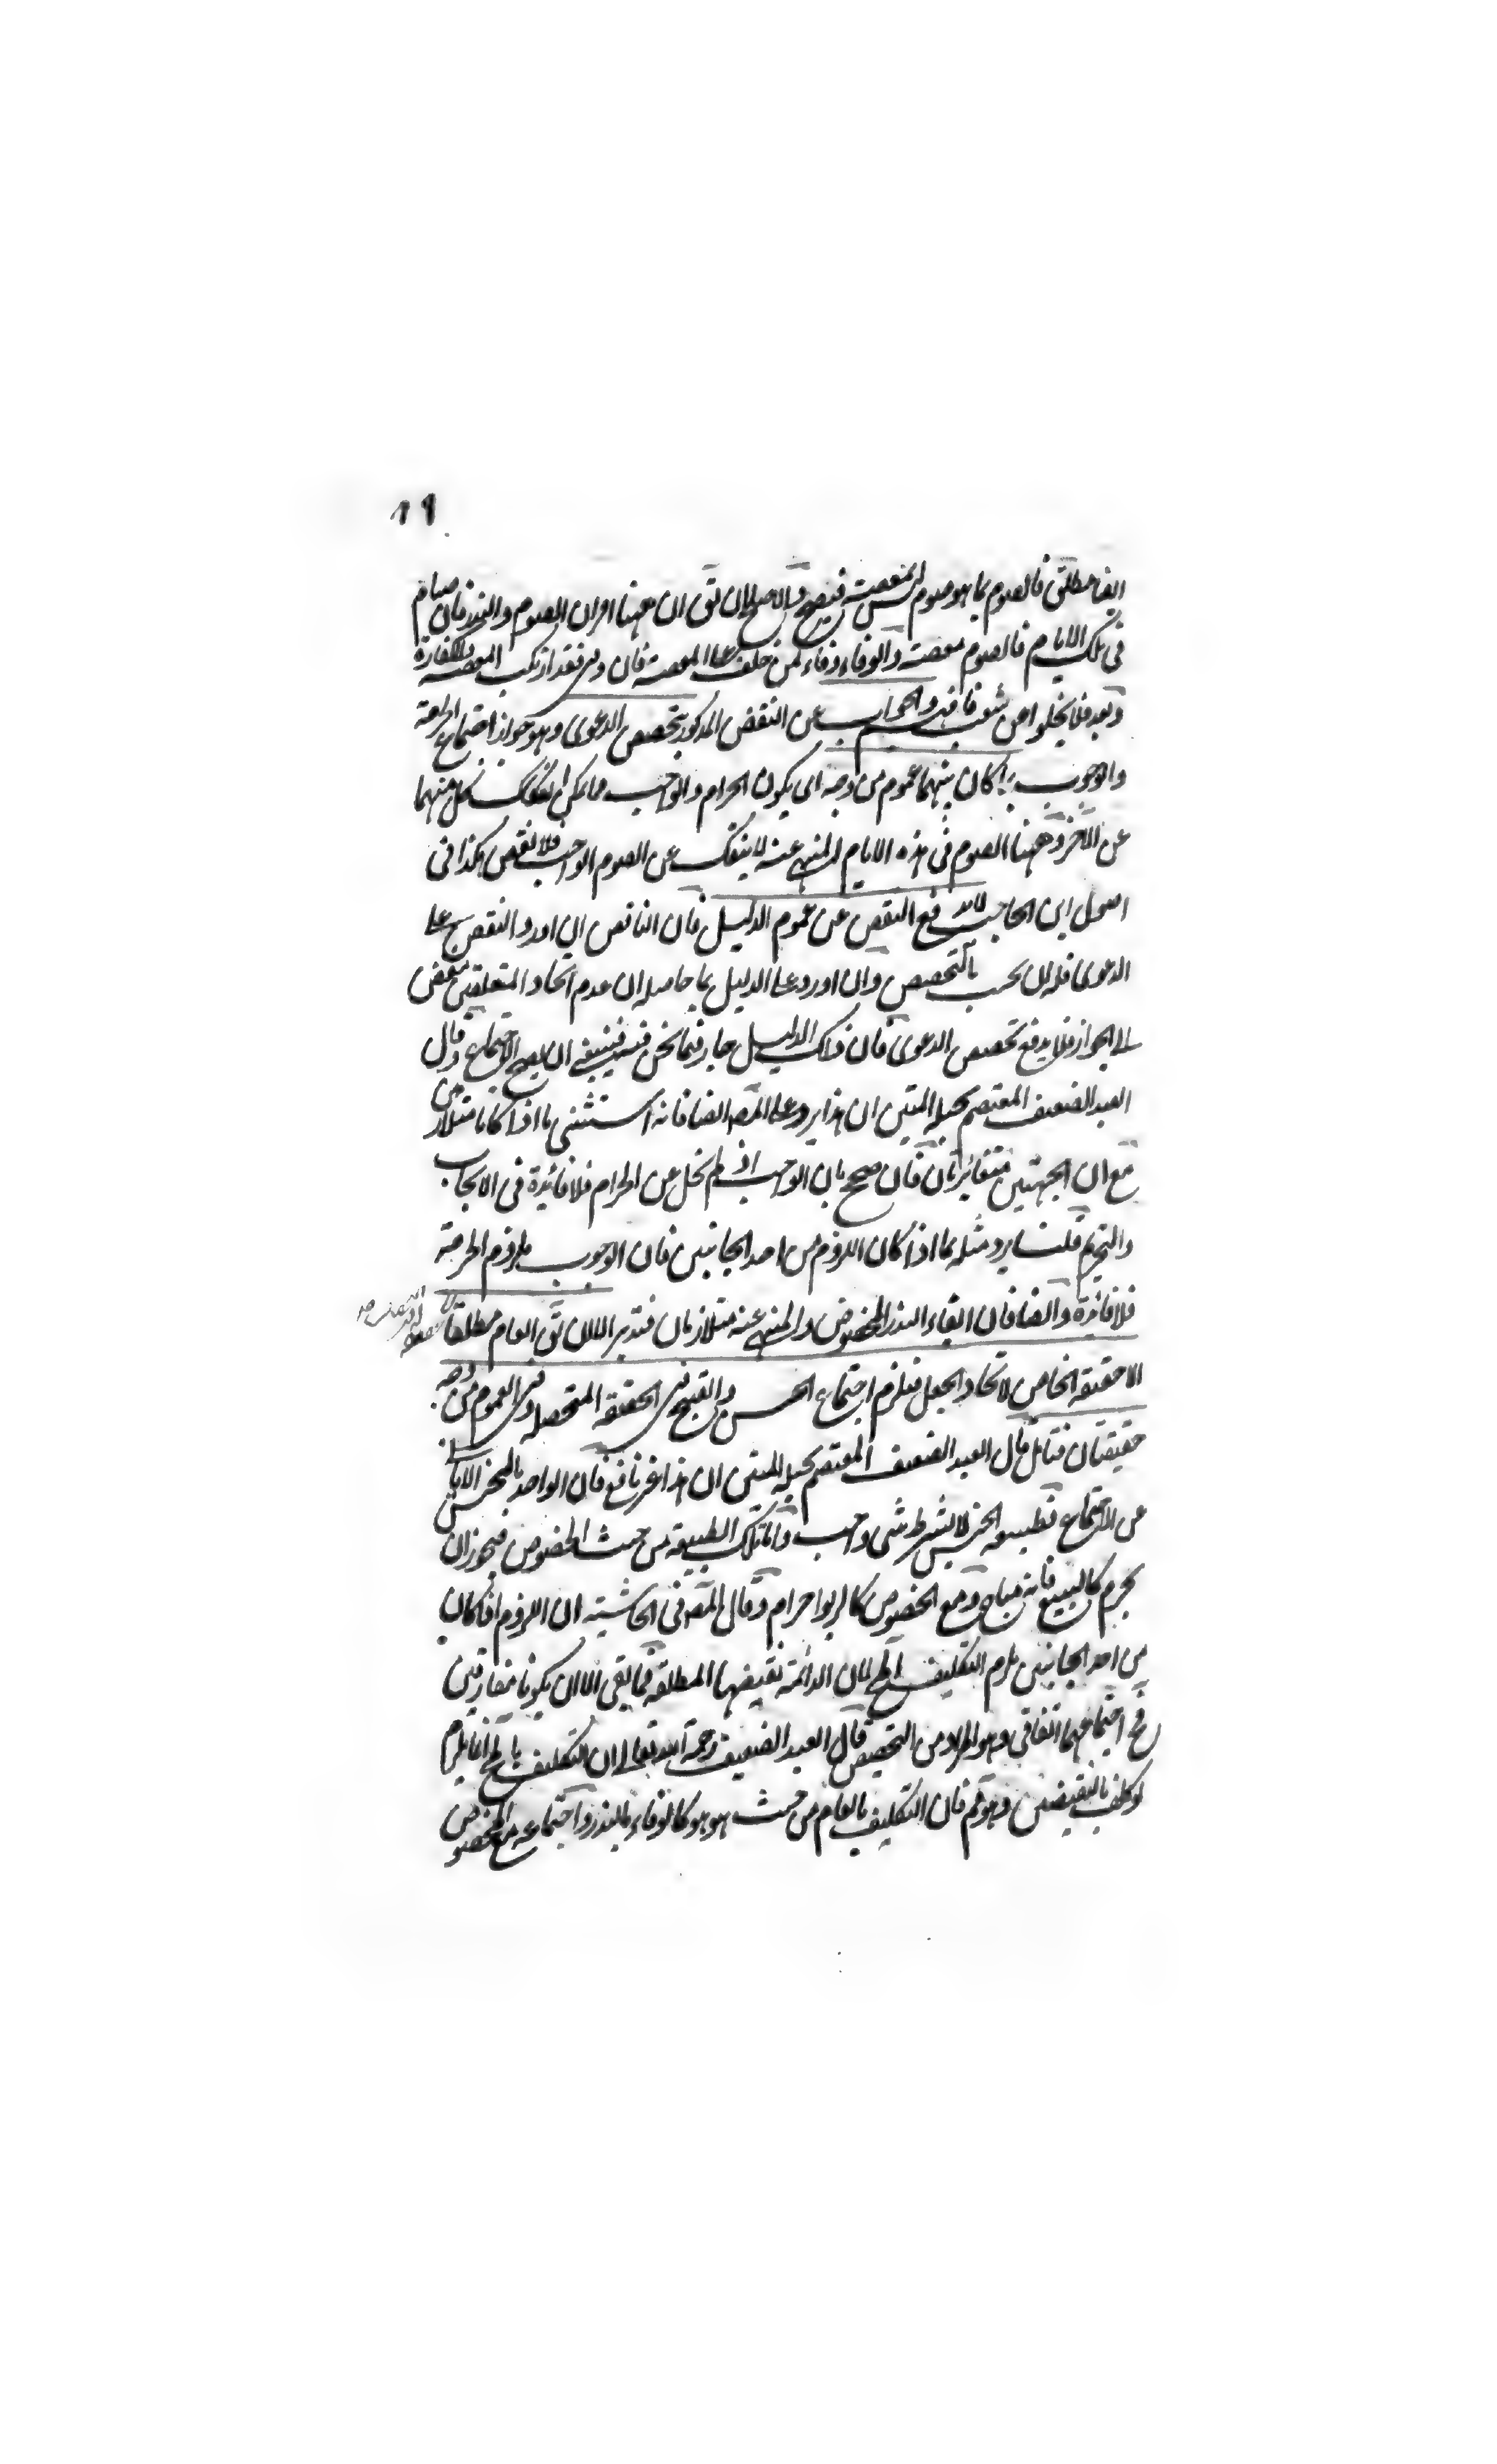 ١٩
ايضا مطلق فالصوم بما هو صوم ليس بمعصية فيصح والاصلح ان يق ان ههنا امران الصوم والنذر فان صام
في تلك الايام فالصوم معصية والوفاء وفاء لمن حلف على المعصية فان وفى فقد ارتكب المعصية والكفارة
وبعد فلا يخلوا من شعب فافهم والجواب عن النقض المذكور بتخصيص الدعوى وهو جواز اجتماع الحرمة
والوجوب بما كان بينهما عموم من وجه اى يكون الحرام والواجب مما يمكن انفكاك كل منهما
عن الاخر وههنا الصوم في هذه الايام المنهى عنه لا ينفك عن الصوم الواجب فلا نقض هكذا في
اصول ابن الحاجب لا يدفع النقض عن عموم الدليل فان الناقض ان اورد النقض على
الدعوى فله ان يجب بالتخصيص وان اورد على الدليل بما حاصله ان عدم اتحاد المتعلقين مفض
الى الجواز فلا يدفع تخصيص الدعوى فان ذلك الدليل جار فيما نحن فيه فينبغى ان يصح الاجتماع وقال
العبد الضعيف المعتصم بحبله المتين ان هذا يرد على المصـ ايضا فانه استثنى ما اذا كانا متلازمين
مع ان الجهتين متغائرتان فان صحح بان الواجب اذ لم يخل عن الحرام فلا فائدة في الايجاب
والتحريم قلنا يرد مثله بما اذا كان اللزوم من احد الجانبين فان الوجوب يلزوم الحرمة
فلا فائدة وايضا فان ايفاء النذر المخصوص والمنهى عنه متلازمان فتدبر الا ان يق العام مطلقا
الا حقيقة الخاص لاتحاد الجعل فيلزم اجتماع الحسن والقبح في الحقيقة المتحصلة وفى العموم من وجه
حقيقتان فتامل قال العبد الضعيف المعتصم بحبله المتين ان هذا غير نافع فان الواحد بالجنس لا يأبى
عن الاجتماع فطبيعة الجنس لا بشرط شى واجب واما تلك الطبيعة من حيث الخصوص فيجوز ان
يحرم كالبيع فانه مباح ومع الخصوص كالربوا حرام وقال المصـ في الحاشية ان اللزوم اذا كان
من احد الجانبين يلزم التكليف بالمح لان الدائمة نقيضها المطلقة فما بقى الا ان يكونا مفارقين
فح اجتماعهما اتفاقى وهو المراد من التخصيص قال العبد الضعيف رحمة الله تعالى ان التكليف بالمح انما يلزم
لو كلف بالنقيضين وهو مم فان التكليف بالعام من حيث هو هو كالوفاء بالنذر واجتماعه مع الخصوص